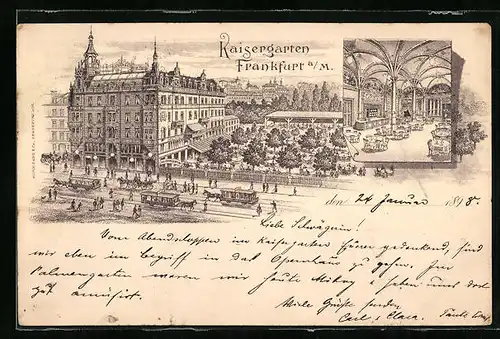 Kaisergarten
Frankfurt a/M.
den 24 Januar 1898.
Liebe Schwägerin!
Vom Abendschoppen im Kaisergarten Euerer gedenkend, sind
wir eben im Begriff in das Opernhaus zu gehen. Im
Palmengarten waren wir heute Mittag u haben uns dort
gut amüsirt.
Viele Grüsse senden
Carl u Clara.